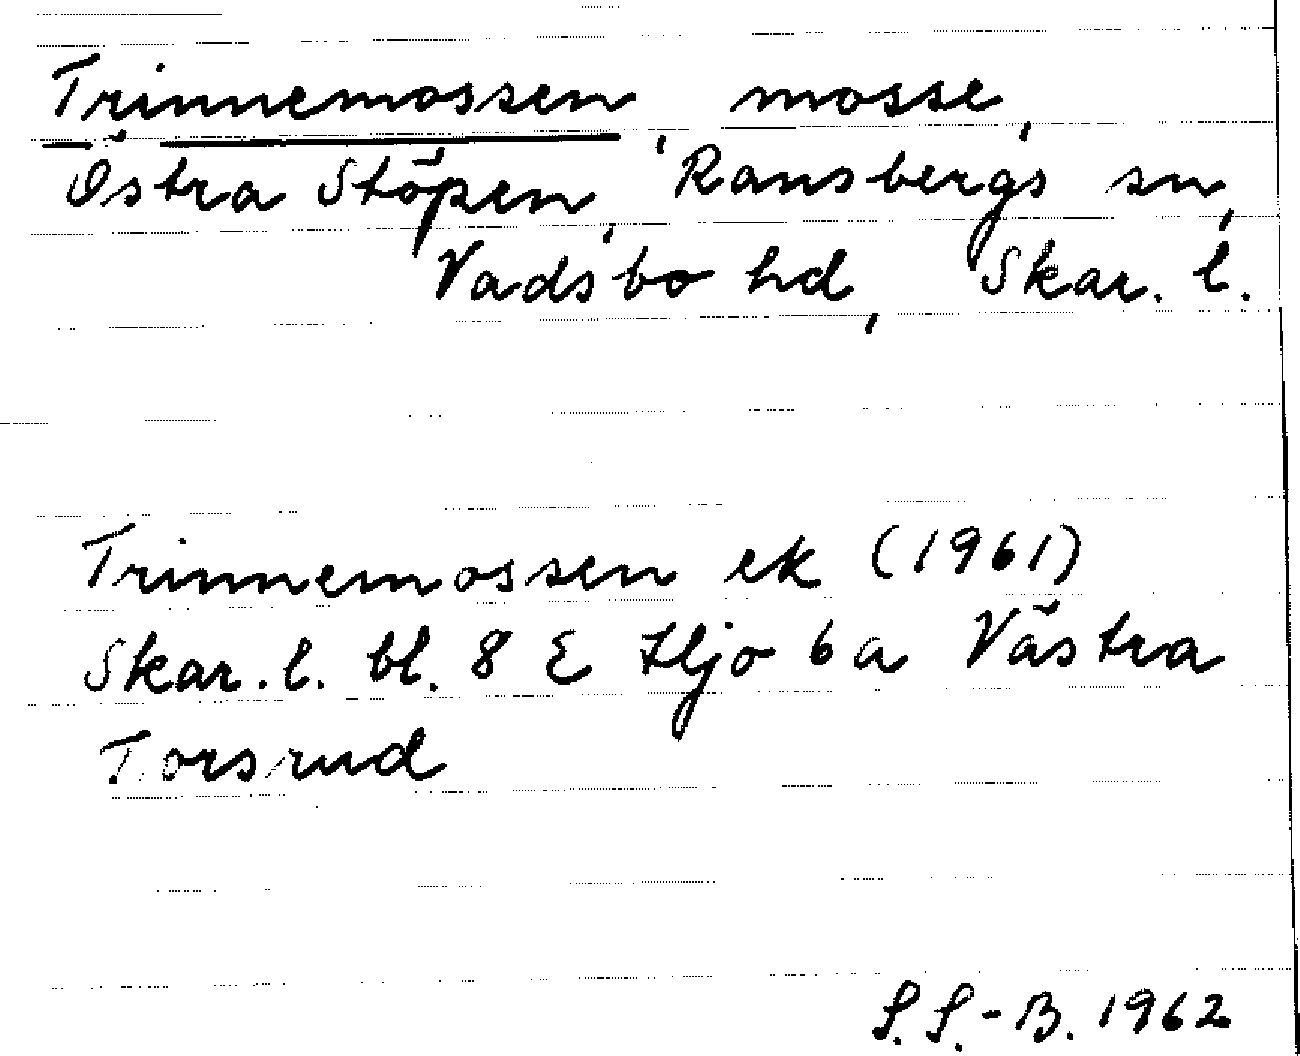 Trinnemossen, mosse,
Östra Stöpen, Ransbergs sn,
Vadsbo hd, Skar. l.
Trinnemossen ek (1961)
Skar. l. bl. 8 E Hjo 6 a Västra
Torsrud
S. S.-B. 1962